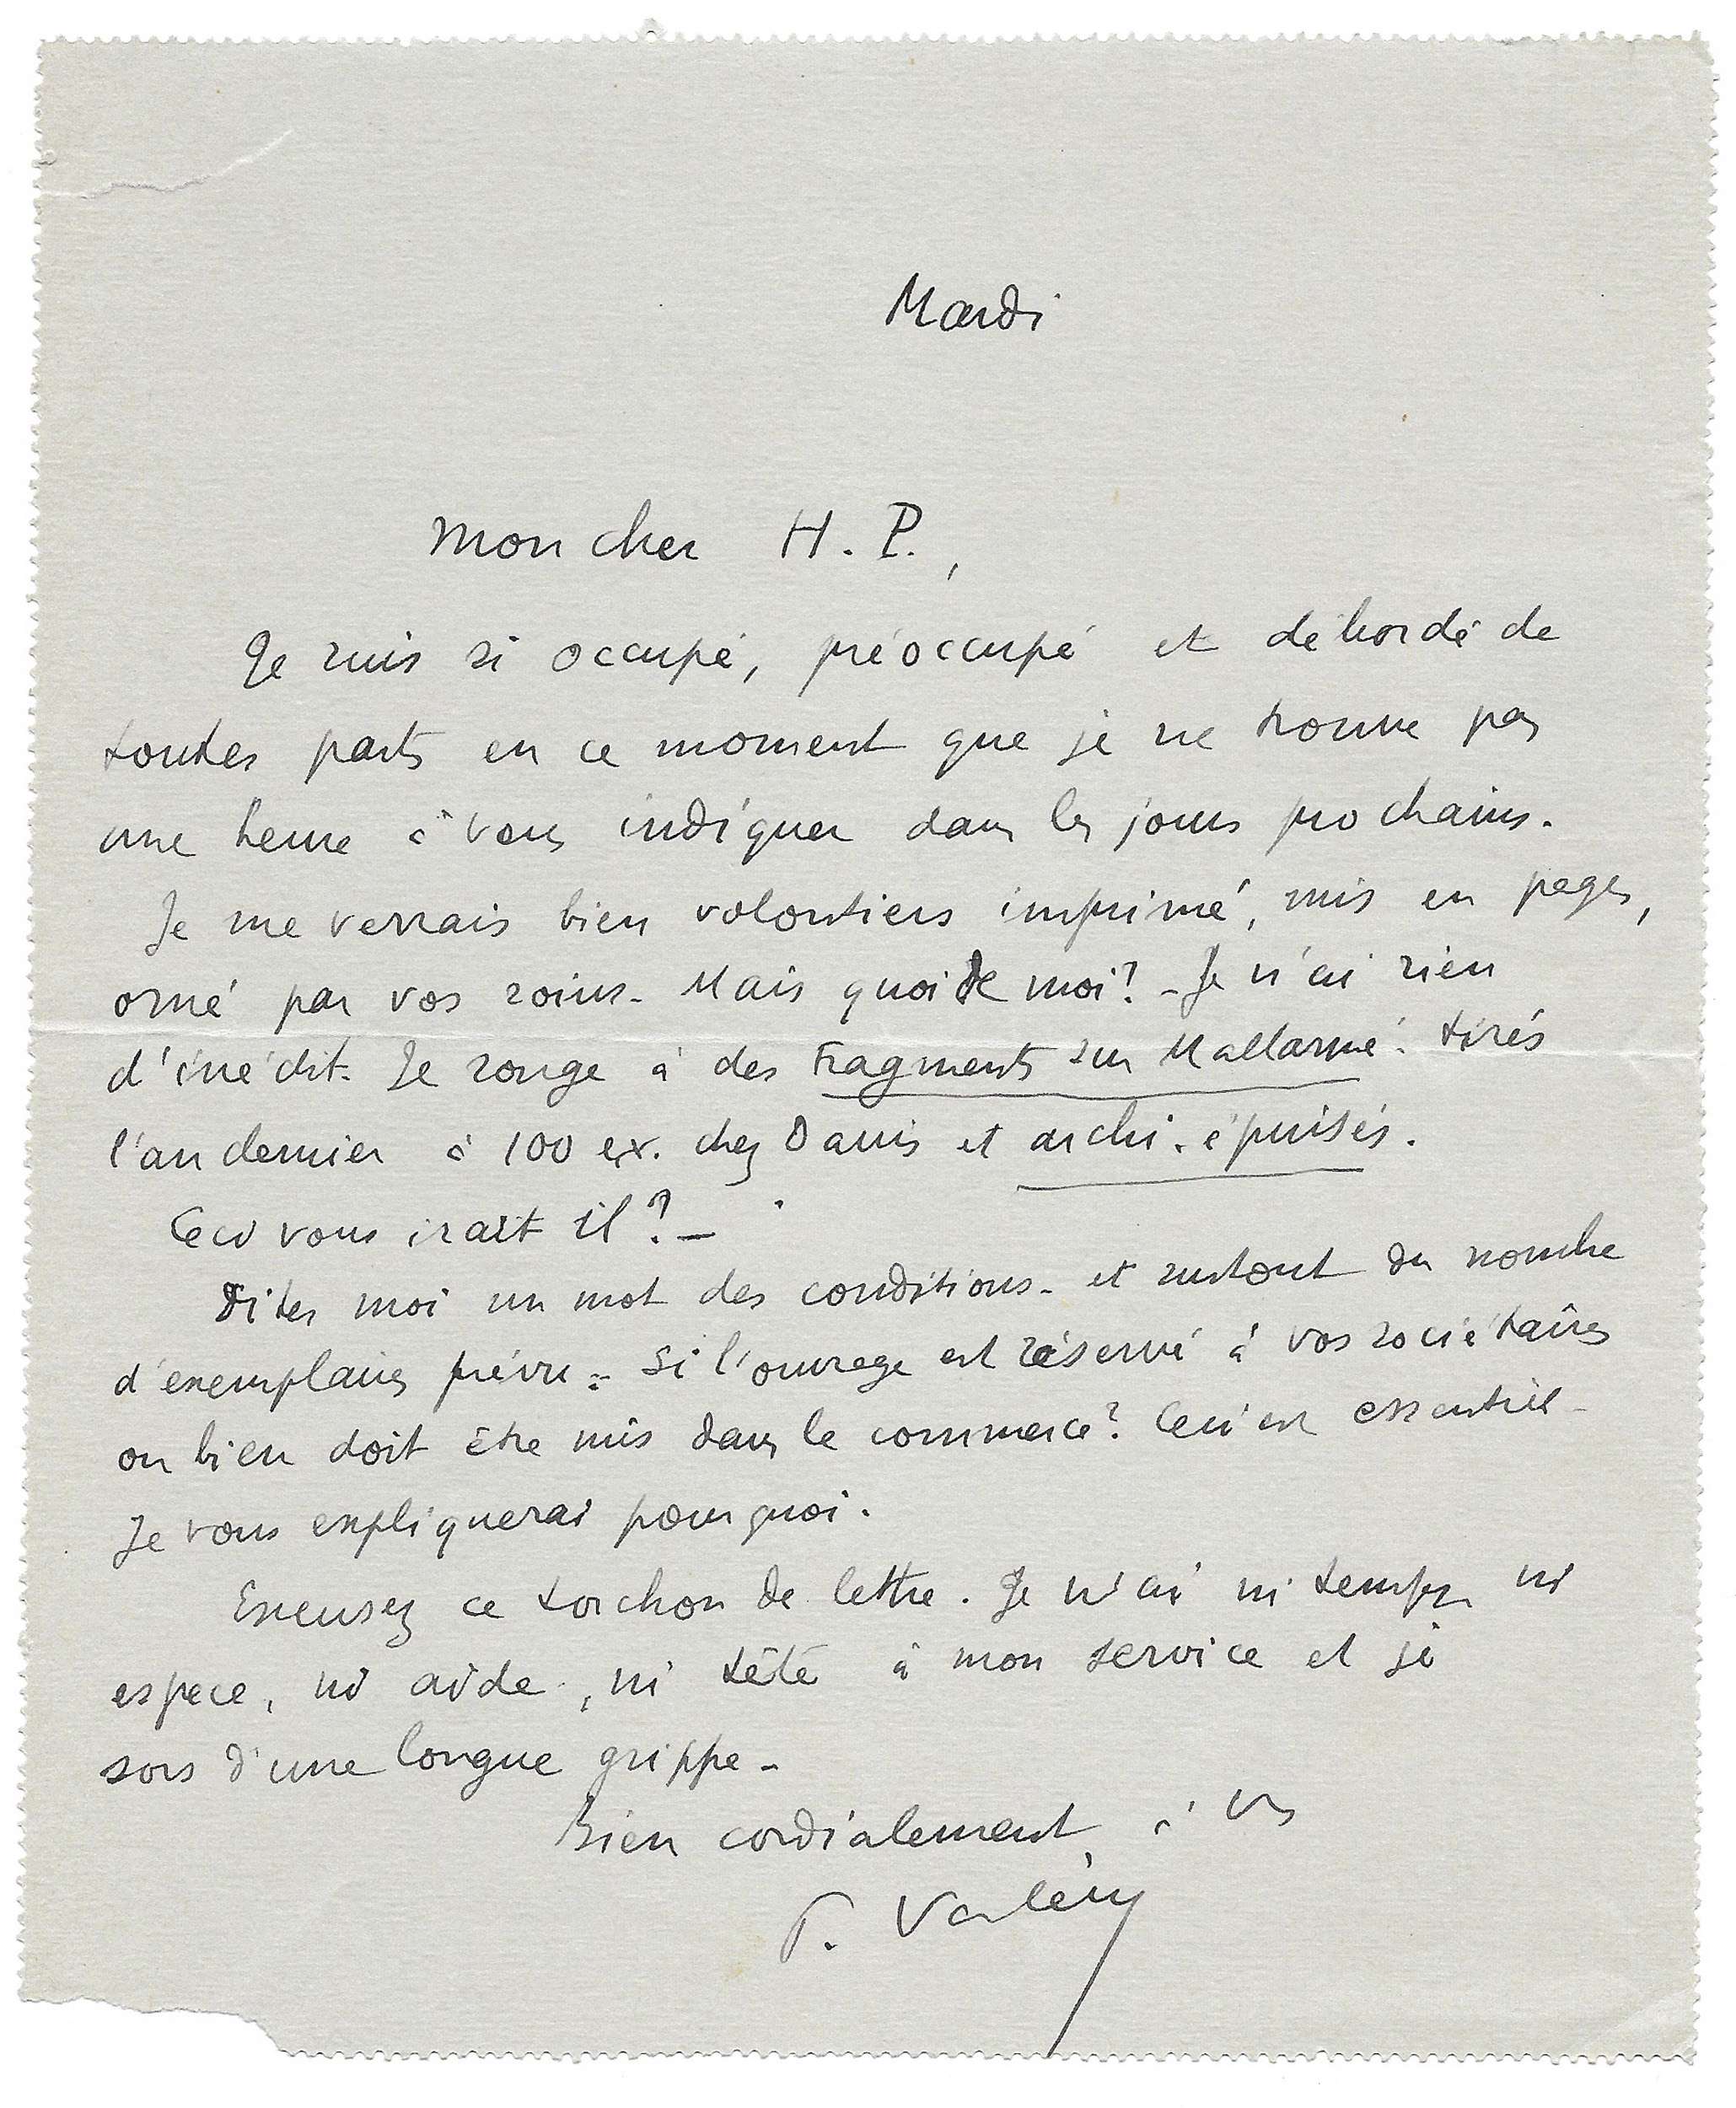 Mardi
Mon cher H. P.,
Je suis si occupé, préoccupé et débordé de
toutes parts en ce moment que je ne trouve pas
une heure à vous indiquer dans les jours prochains.
Je me verrais bien volontiers imprimé, mis en pages,
orné par vos soins - Mais quoi de moi? - Je n'ai rien
d'inédit. Je songe à des Fragments sur Mallarmé. tirés
l'an dernier à 100 ex. chez Davis et archi-épuisés.
Ceci vous irait il? -
Dites moi un mot des conditions - et surtout du nombre
d'exemplaires prévu - Si l'ouvrage est réservé à vos sociétaires
ou bien doit être mis dans le commerce? Ceci est essentiel -
Je vous expliquerai pourquoi.
Excusez ce torchon de lettre. Je n'ai ni temps ni
espace, ni aide, ni tête à mon service et je
sors d'une longue grippe -
Bien cordialement à vs
P. Valéry